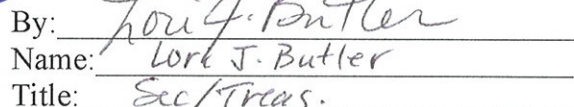 By: Lori J. Butler
Name: Lori J. Butler
Title: Sec/Treas.